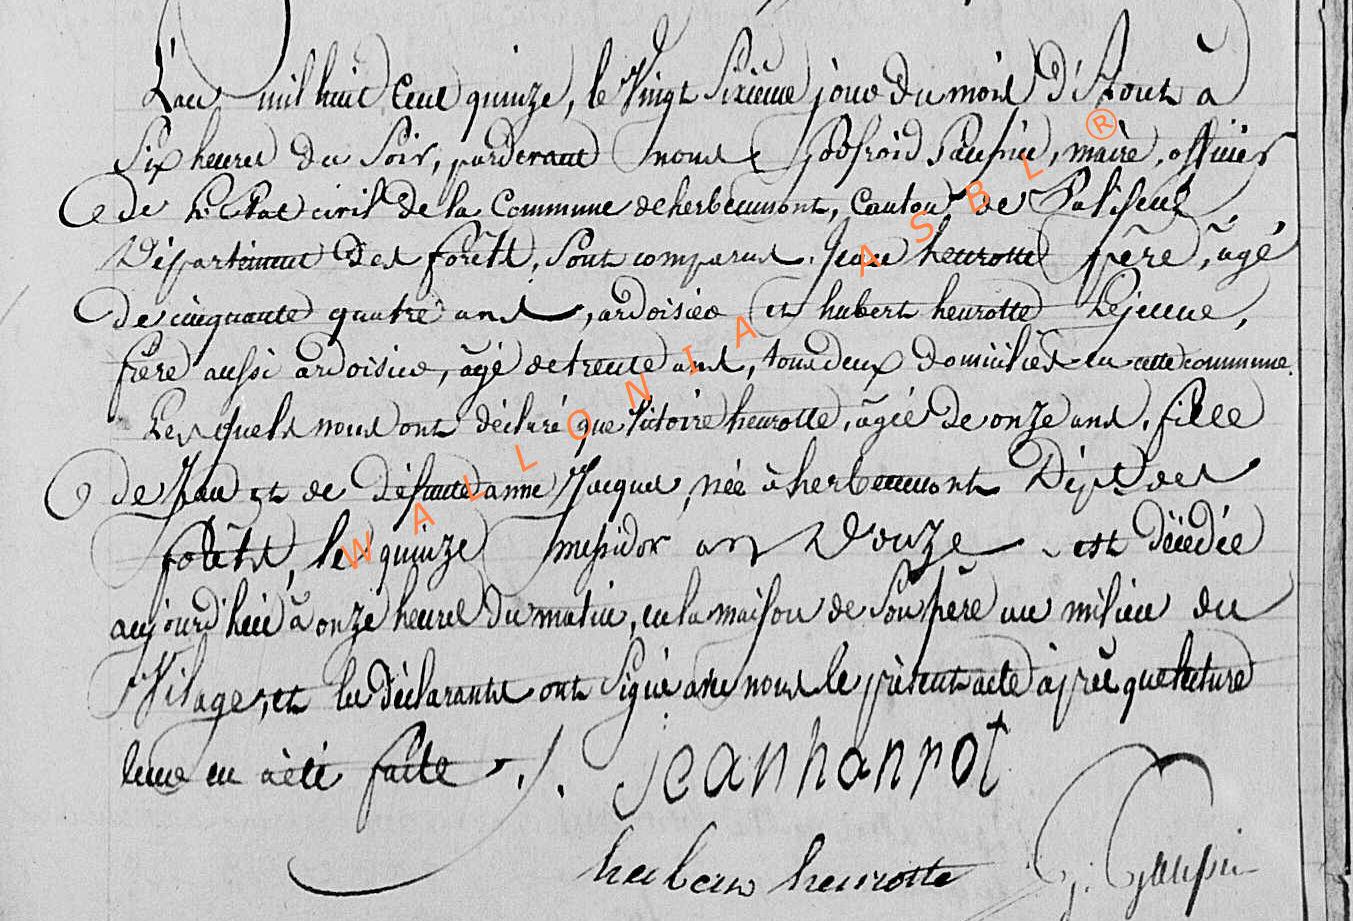 L'an mil huit Cent quinze, le Vingt Sixième jour du mois d'Aout à
Six heures du Soir, pardevant nous Godfroid Paufin, maire, officier
de L'Etat civil de la Commune deherbeumont, Canton de Paliseul,
Département des forêts, Sont comparus. Jean heurotte père, âgé
de cinquante quatre ans, ardoisier et hubert heurotte Lejeune,
frère aussi ardoisier, âgé de trente ans, tous deux domiciliés en cette commune.
Lesquels nous ont déclaré que Victoire heurotte, agée de onze ans, fille
de Jean et de défunte anne Jacques, née à herbeumont Dépt des
forêts, le quinze messidor an Douze est décédée
aujourd'hui à onze heures du matin, en la maison de Son père au milieu du
Vilage, et les déclarants ont Signé avec nous le présent acte après que lecture
leur en a été faite ./.
jean hanrot
huber heurotte
G. Paupin
WALLONIA ASBL ®